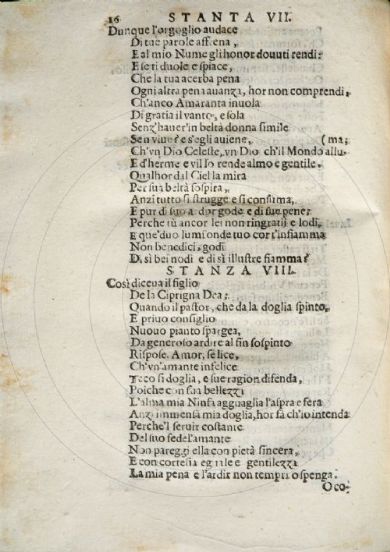 16 STANTA VII.
Dunque l'orgoglio audace
Di tue parole affrena,
E al mio Nume gli honor douuti rendi:
E se ti duole e spiace,
Che la tua acerba pena
Ogni altra pena auanza, hor non comprendi,
Ch'anco Amaranta inuola
Di gratia il vanto, e sola
Senz'hauer'in beltà donna simile
Sen viue? e s'egli auiene, (ma;
Ch'vn Dio Celeste, vn Dio ch'il Mondo allu-
E d'herme e vil lo rende almo e gentile.
Qualhor dal Ciel la mira
Per sua beltà sospira,
Anzi tutto si strugge e si consuma,
E pur di suo ardor gode e di sue pene:
Perche tu ancor lei non ringratij e lodi,
E que'duo lumi onde tuo cor s'infiamma
Non benedici, godi
Di sì bei nodi e di sì illustre fiamma?
STANZA VIII.
Così diceua il figlio
De la Ciprigna Dea;
Quando il pastor, che da la doglia spinto,
E priuo consiglio
Nuouo pianto spargea,
Da generoso ardire al fin sospinto
Rispose. Amor, se lice,
Ch'vn'amante infelice
Teco si doglia, e sue ragion difenda,
Poiche con sua bellezza
L'alma mia Ninfa agguaglia l'aspra e fera
Anzi immensa mia doglia, hor fà ch'io intenda
Perche'l seruir costante
Del suo fedel'amante
Non pareggi ella con pietà sincera,
E con cortesia eguale e gentilezza
La mia pena e l'ardir non tempri o spenga.
O co-